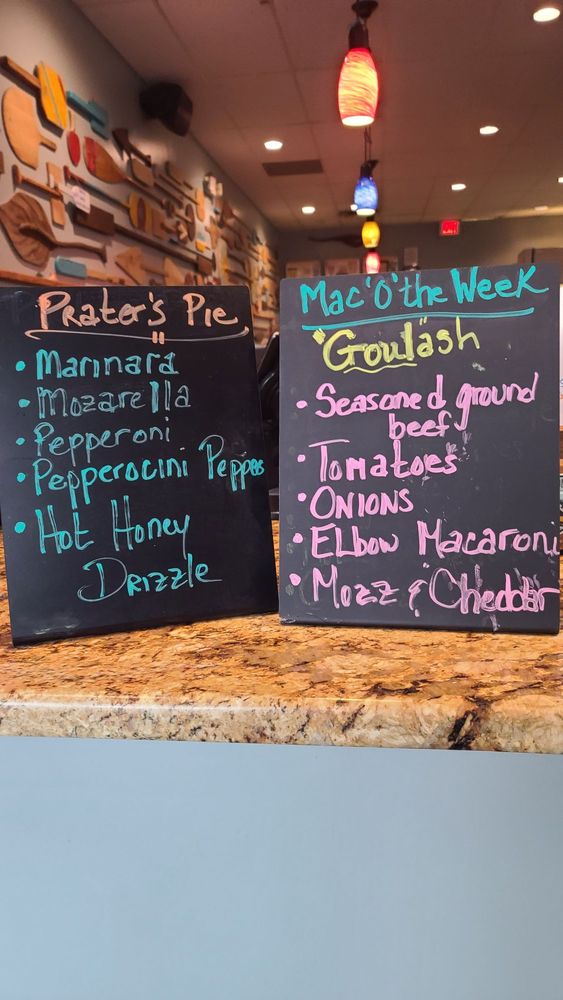 Prater's Pie
• Marinara
• Mozarella
• Pepperoni
• Pepperocini Peppers
• Hot Honey
Drizzle
Mac 'O' the Week
"Goulash"
• Seasoned ground
beef
• Tomatoes
• Onions
• Elbow Macaroni
• Mozz & Cheddar